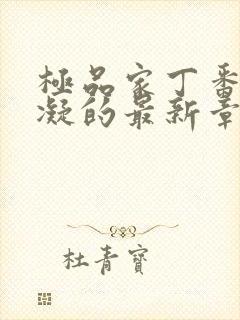 極品家丁番
凝的最新章
杜青寶